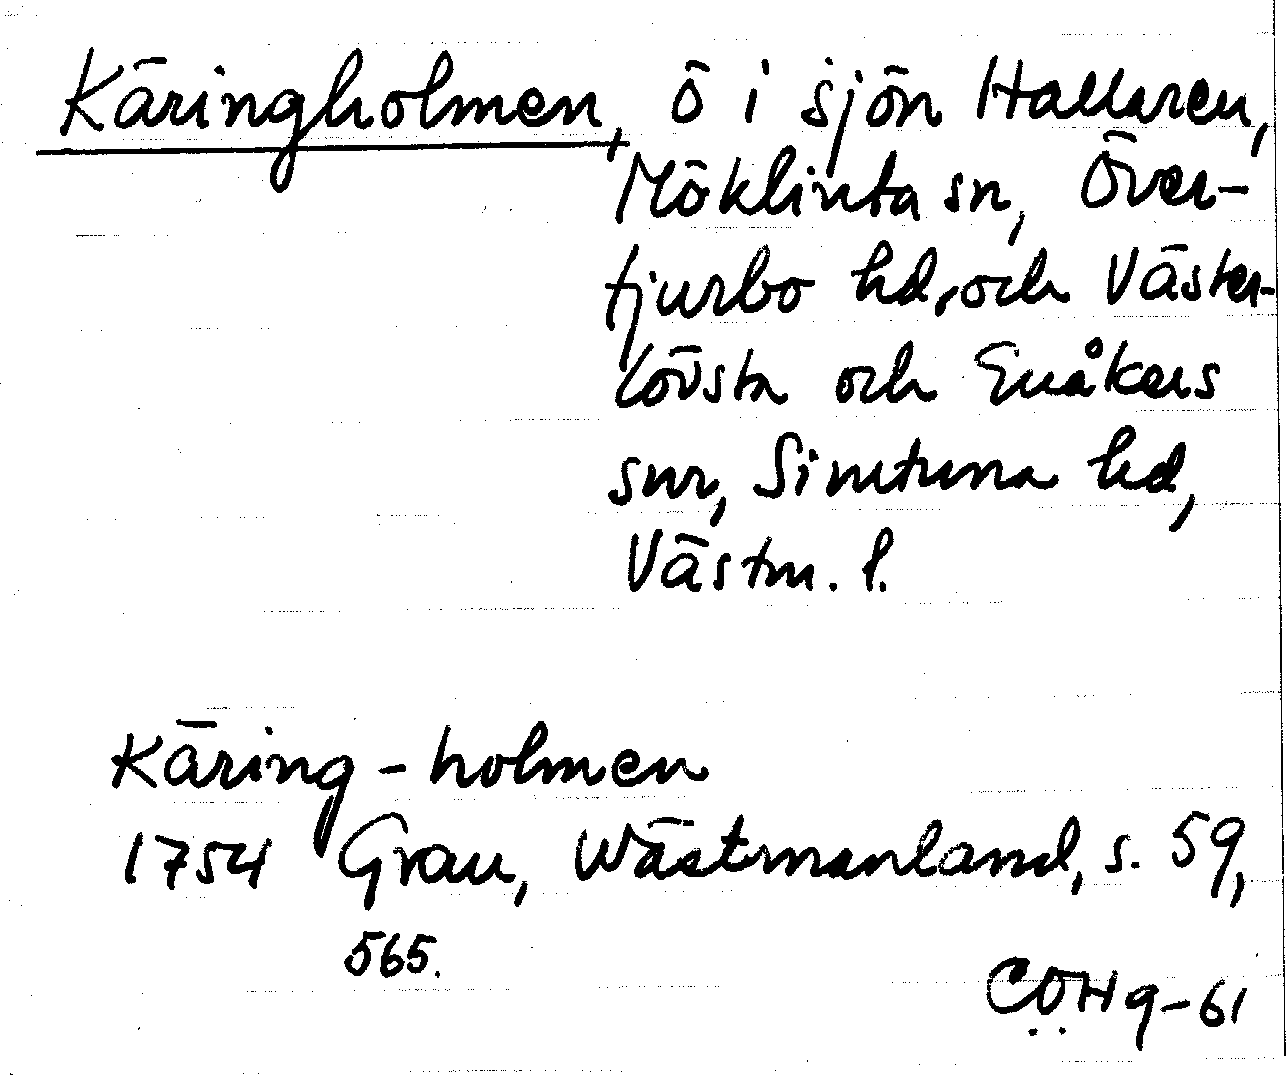 Käringholmen, ö i sjön Hallaren,
Möklinta sn, Över-
tjurbo hd, och Väster-
lövsta och Enåkers
snr, Simtuna hd,
Västm. l.
Käring-holmen
1754 Grau, Wästmanland, s. 59,
565.
CÖH 9-61